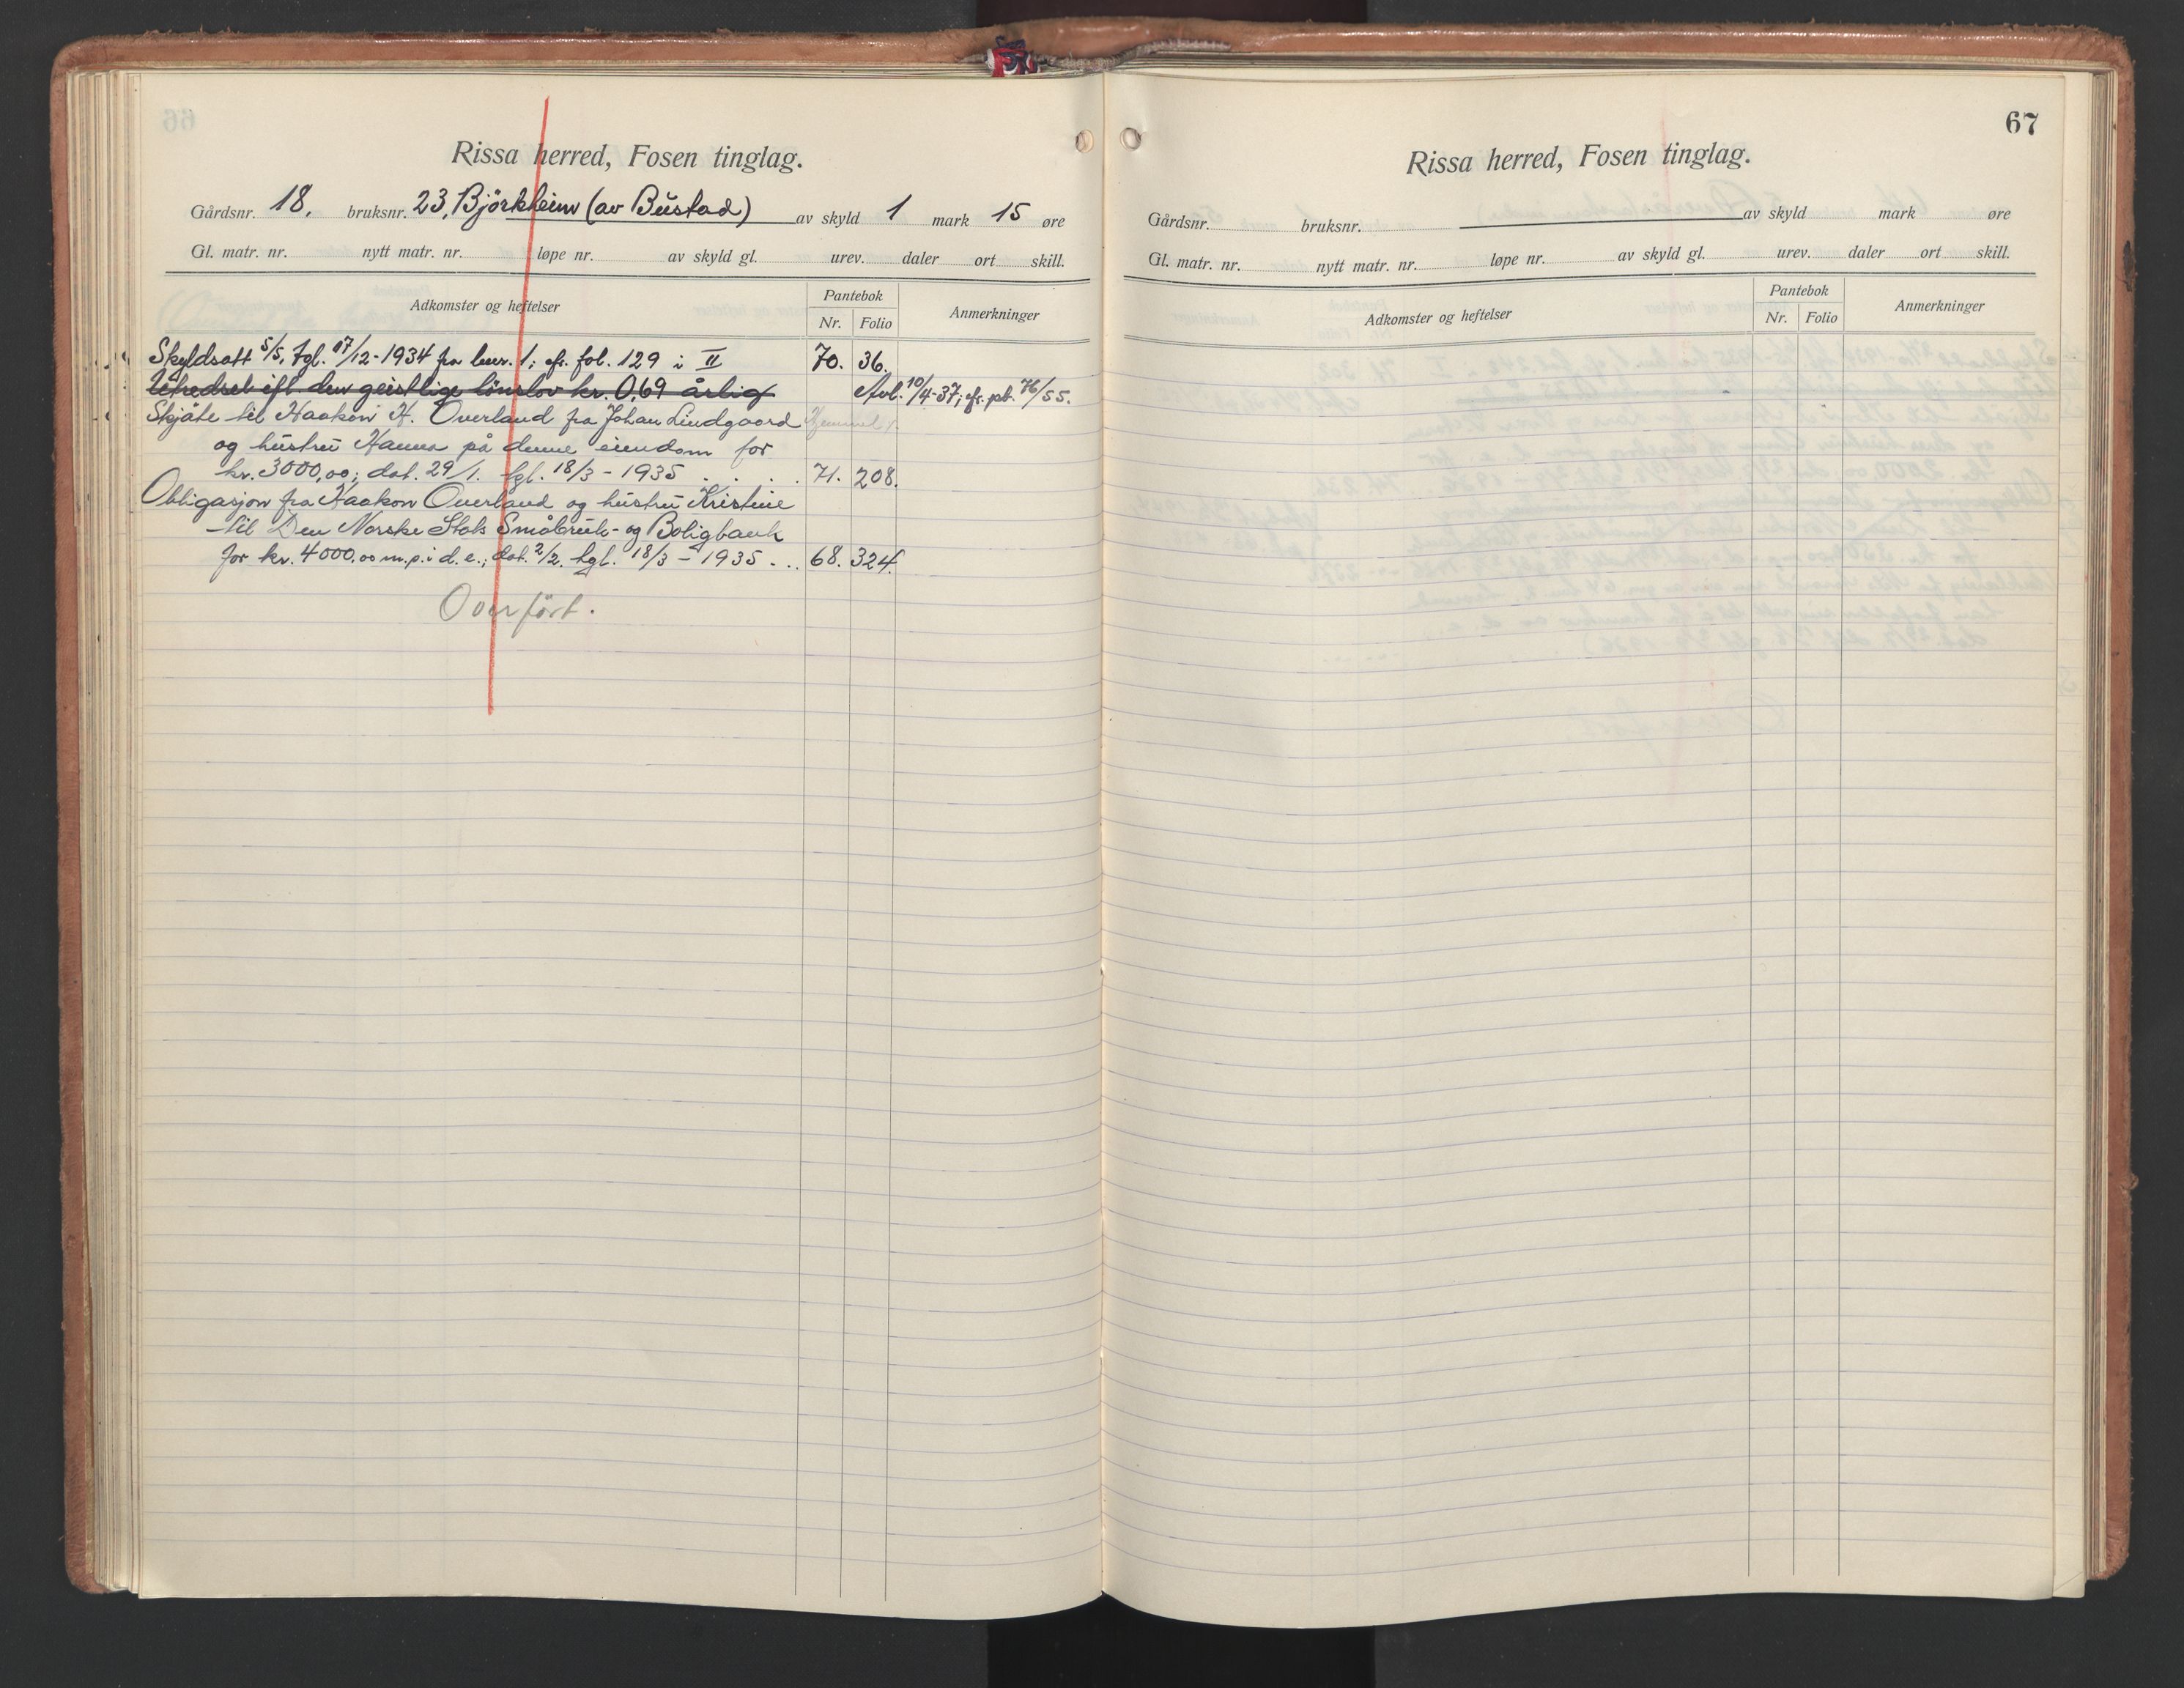 Rissa herred, Fosen tinglag.
Gårdsnr. 18, bruksnr. 23, Björkheim (av Bustad) av skyld 1 mark 15 øre
Gl. matr. nr. nytt matr. nr. løpe nr. av skyld gl. urev. daler ort skill.
Adkomster og heftelser Pantebok Anmerkninger
Nr. Folio
Skyldsatt 5/5, tgl. 17/12-1934 fra bnr. 1; cfr. fol. 129 i II 70. 36.
Utredsel ifl. den geistlige lönslov kr. 0,69 årlig Avl. 10/4-37; cfr. pb. 76/55.
Skjöte til Haakon H. Overland fra Johan Lindgaard Hjemmel
og hustru Hanna på denne eiendom for
kr. 3000,00; dat. 29/1. tgl. 18/3 - 1935 . . . . 71. 208.
Obligasjon fra Haakon Overland og hustru Kristine
til Den Norske Stats Småbruk- og Boligbank
for kr. 4000.00 m.p. i d. e.; dat. 2/2. tgl. 18/3 - 1935 . . . 68. 324.
Overfört.
67
Rissa herred, Fosen tinglag.
Gårdsnr. bruksnr. av skyld mark øre
Gl. matr. nr. nytt matr. nr. løpe nr. av skyld gl. urev. daler ort skill.
Adkomster og heftelser Pantebok Anmerkninger
Nr. Folio